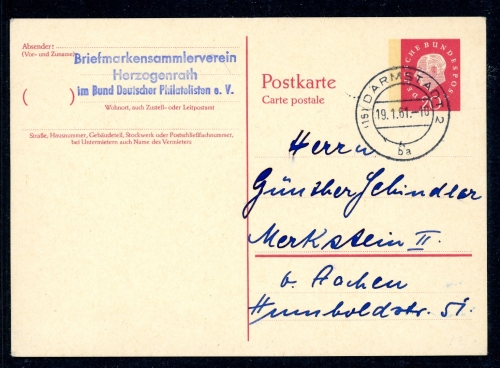 Absender:
(Vor- und Zuname)
Briefmarkensammlerverein
Herzogenrath
im Bund Deutscher Philatelisten e. V.
( )
Wohnort, auch Zustell- oder Leitpostamt
Straße, Hausnummer, Gebäudeteil, Stockwerk oder Postschließfachnummer,
bei Untermietern auch Name des Vermieters
Postkarte
Carte postale
DEUTSCHE BUNDESPOST
20
(16) DARMSTADT 2
19.1.61.-16
ba
Herrn
Günther Schindler
Merkstein II.
b. Aachen
Humboldstr. 51.